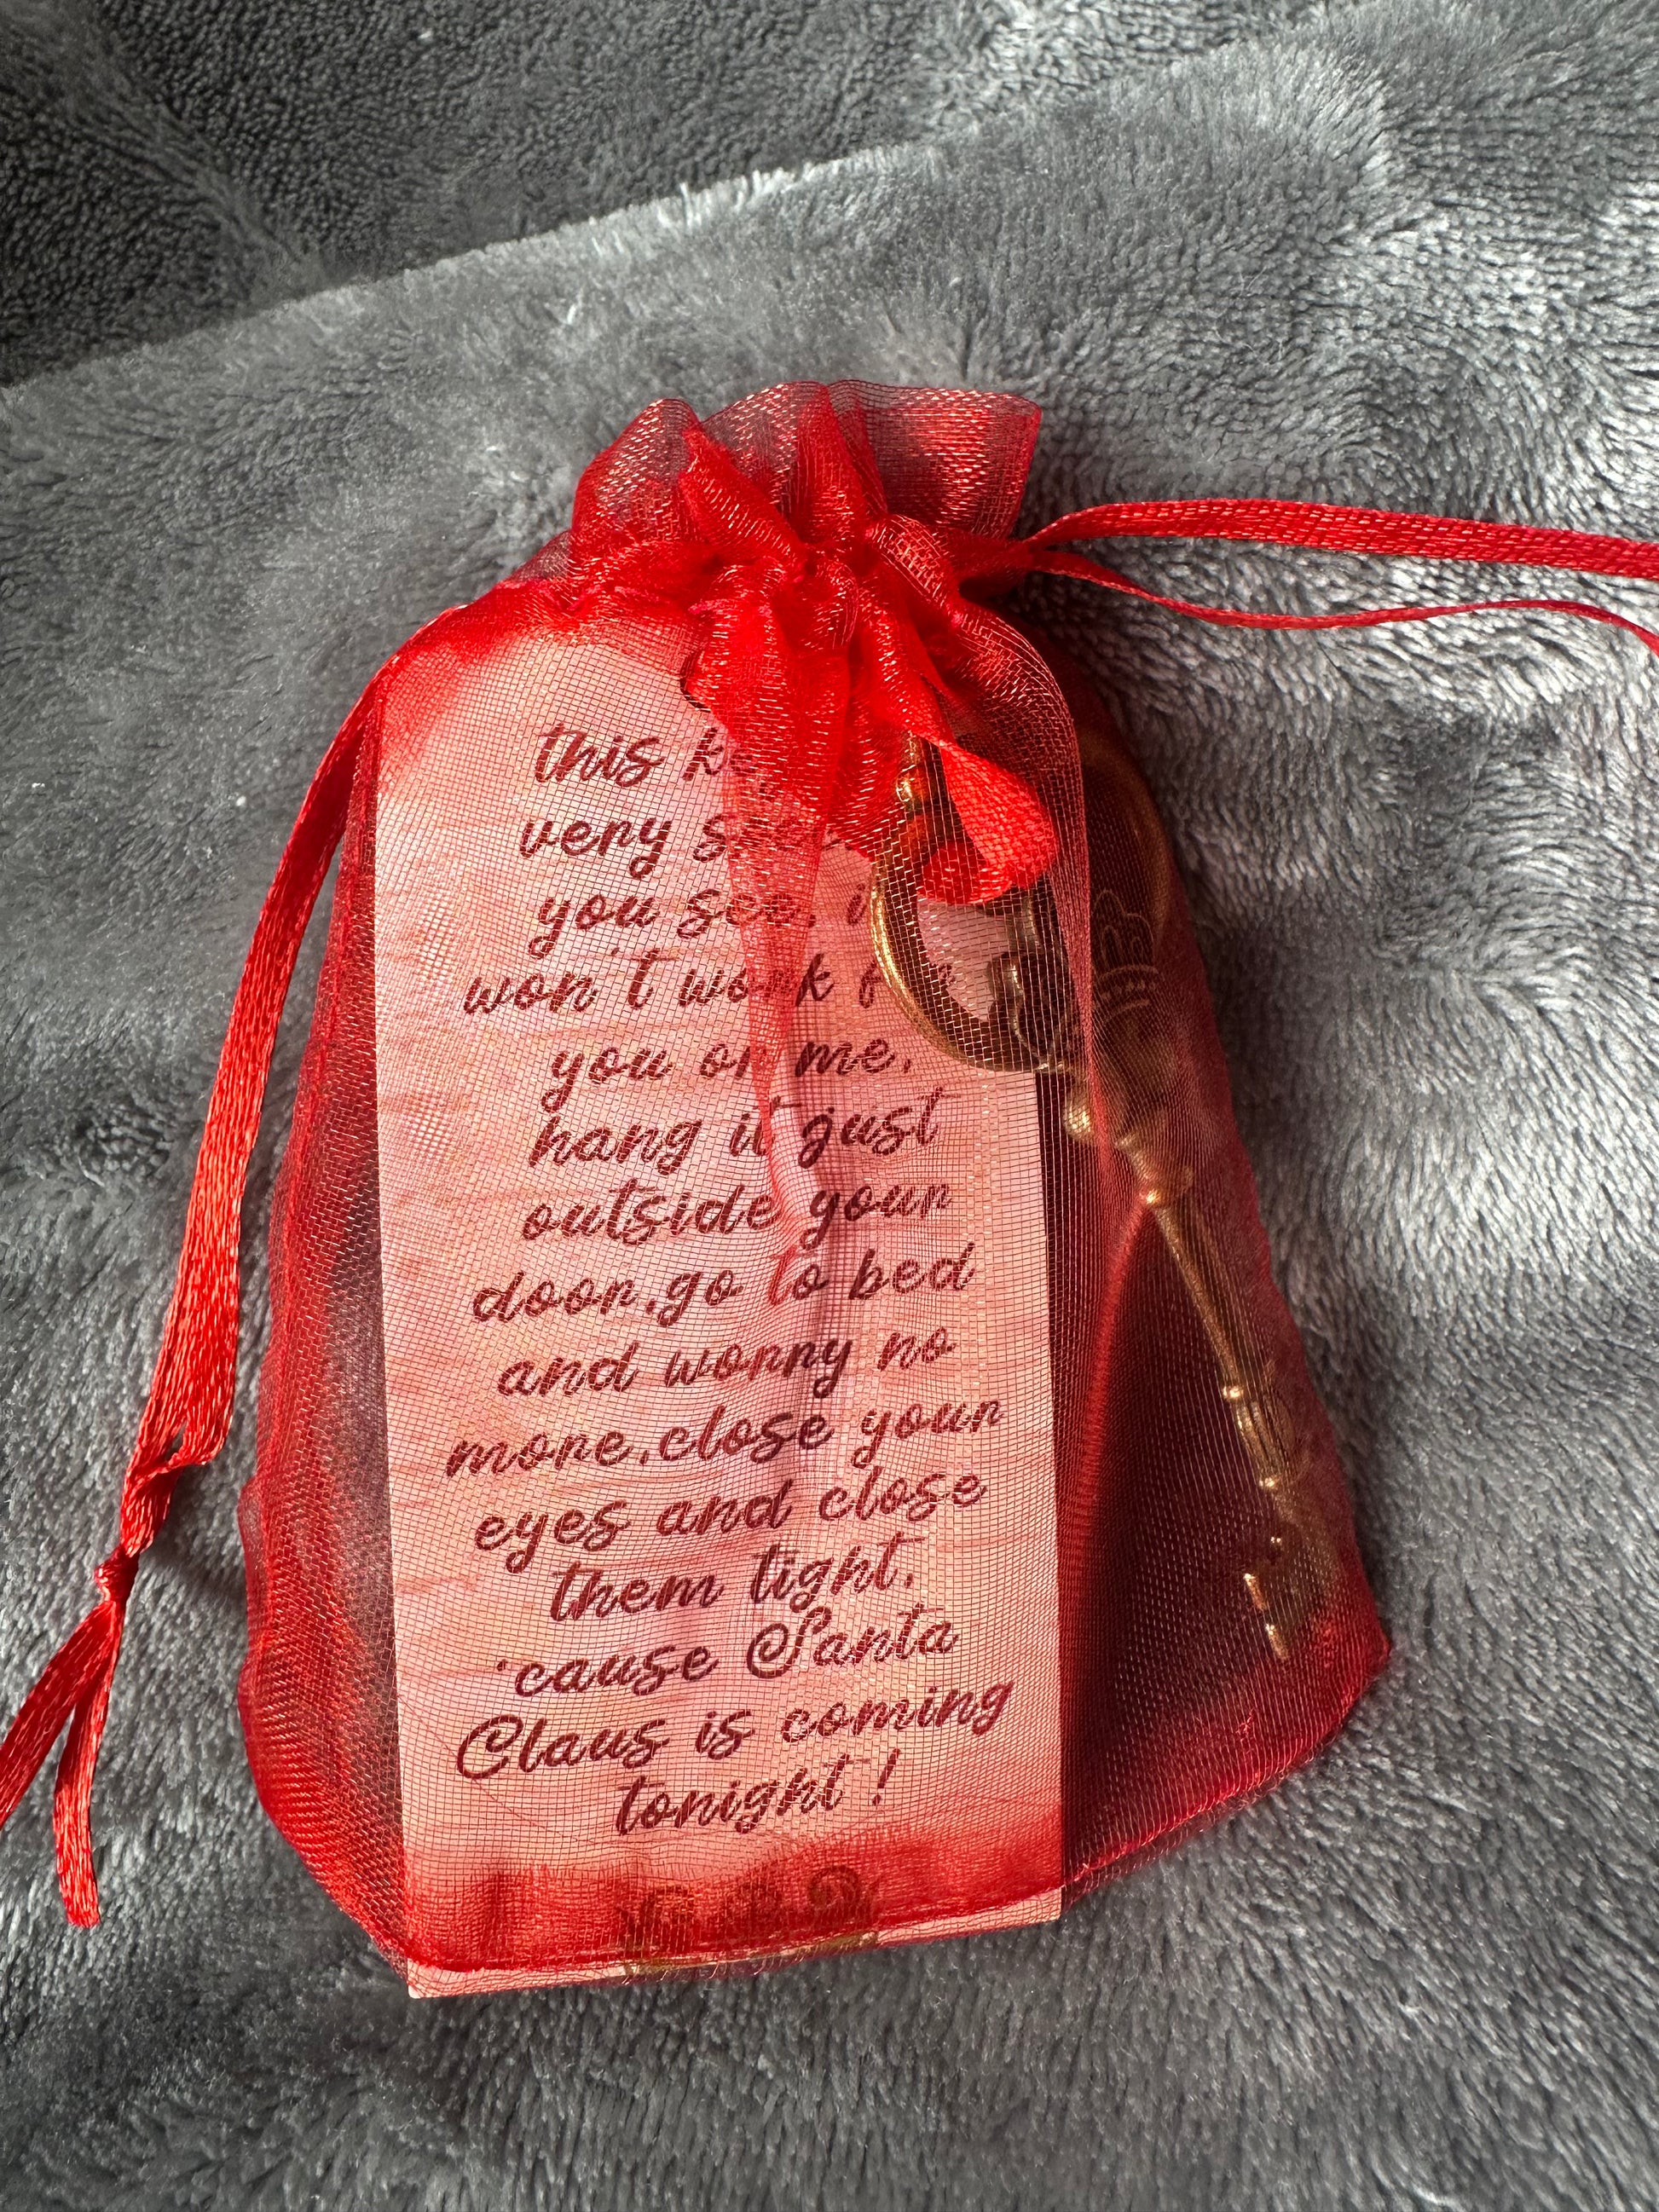 this
very
you see, i
won't work
you or me.
hang it just
outside your
door,go to bed
and worry no
more.close your
eyes and close
them tight.
'cause Santa
Claus is coming
tonight !